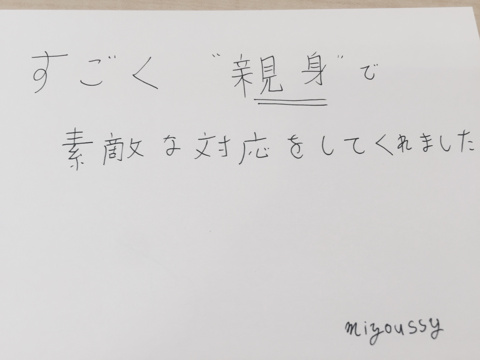 すごく "親身"で
素敵な対応をしてくれました
miyoussy